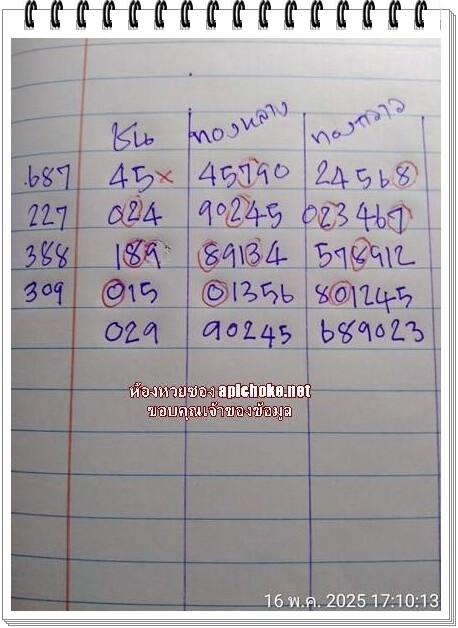 ชน ทองหลาง ทองกลาว
687 45× 45790 24568
227 024 90245 023467
388 189 89134 578912
309 015 01356 801245
029 90245 689023
ห้องหวยซอง apichoke.net
ขอบคุณเจ้าของข้อมูล
16 พ.ค. 2025 17:10:13